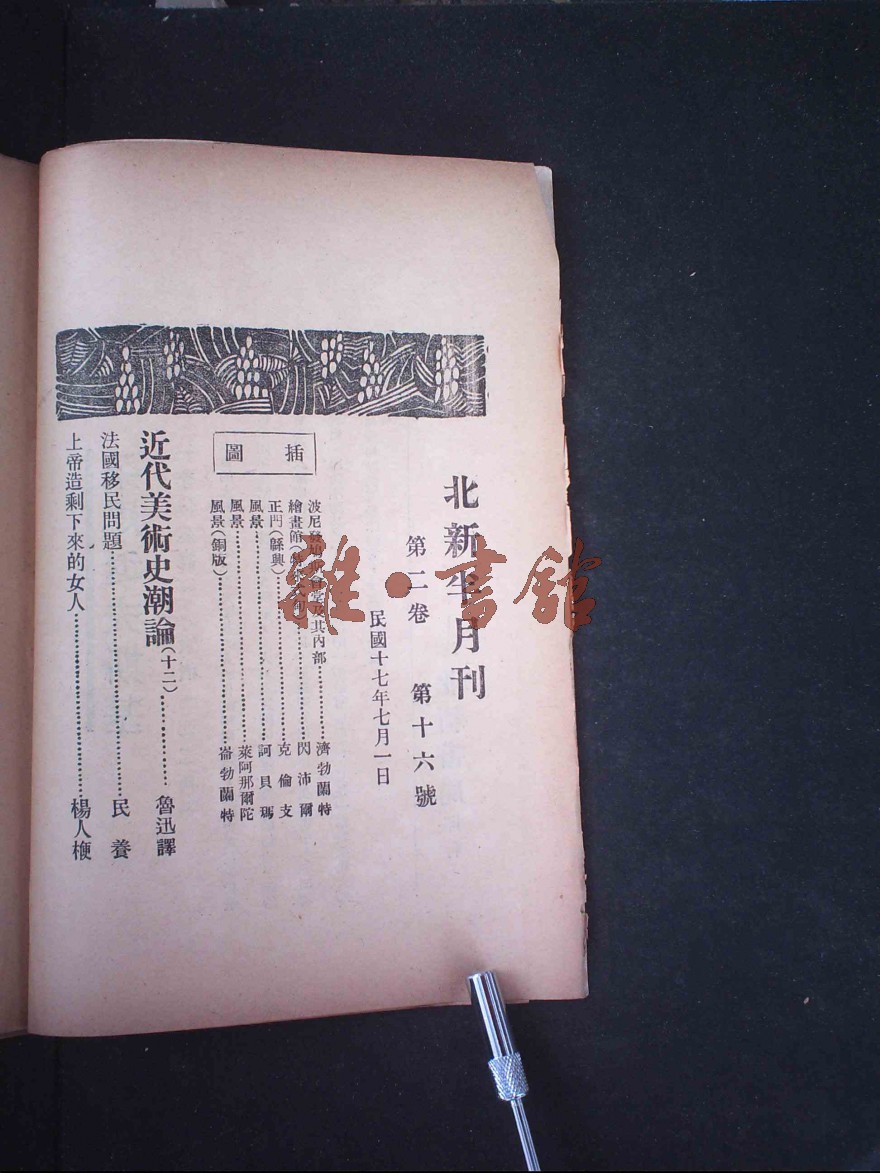 北新半月刊
第二卷 第十六號
民國十七年七月一日
插圖
波尼 會堂及其內部……濟勃蘭特
繪畫館( )……閃沛爾
正門(緜興)……克倫支
風景……訶貝瑪
風景……萊阿那爾陀
風景(銅版)……崙勃蘭特
近代美術史潮論(十二)……魯迅譯
法國移民問題……民養
上帝造剩下來的女人……楊人楩
雜·書館